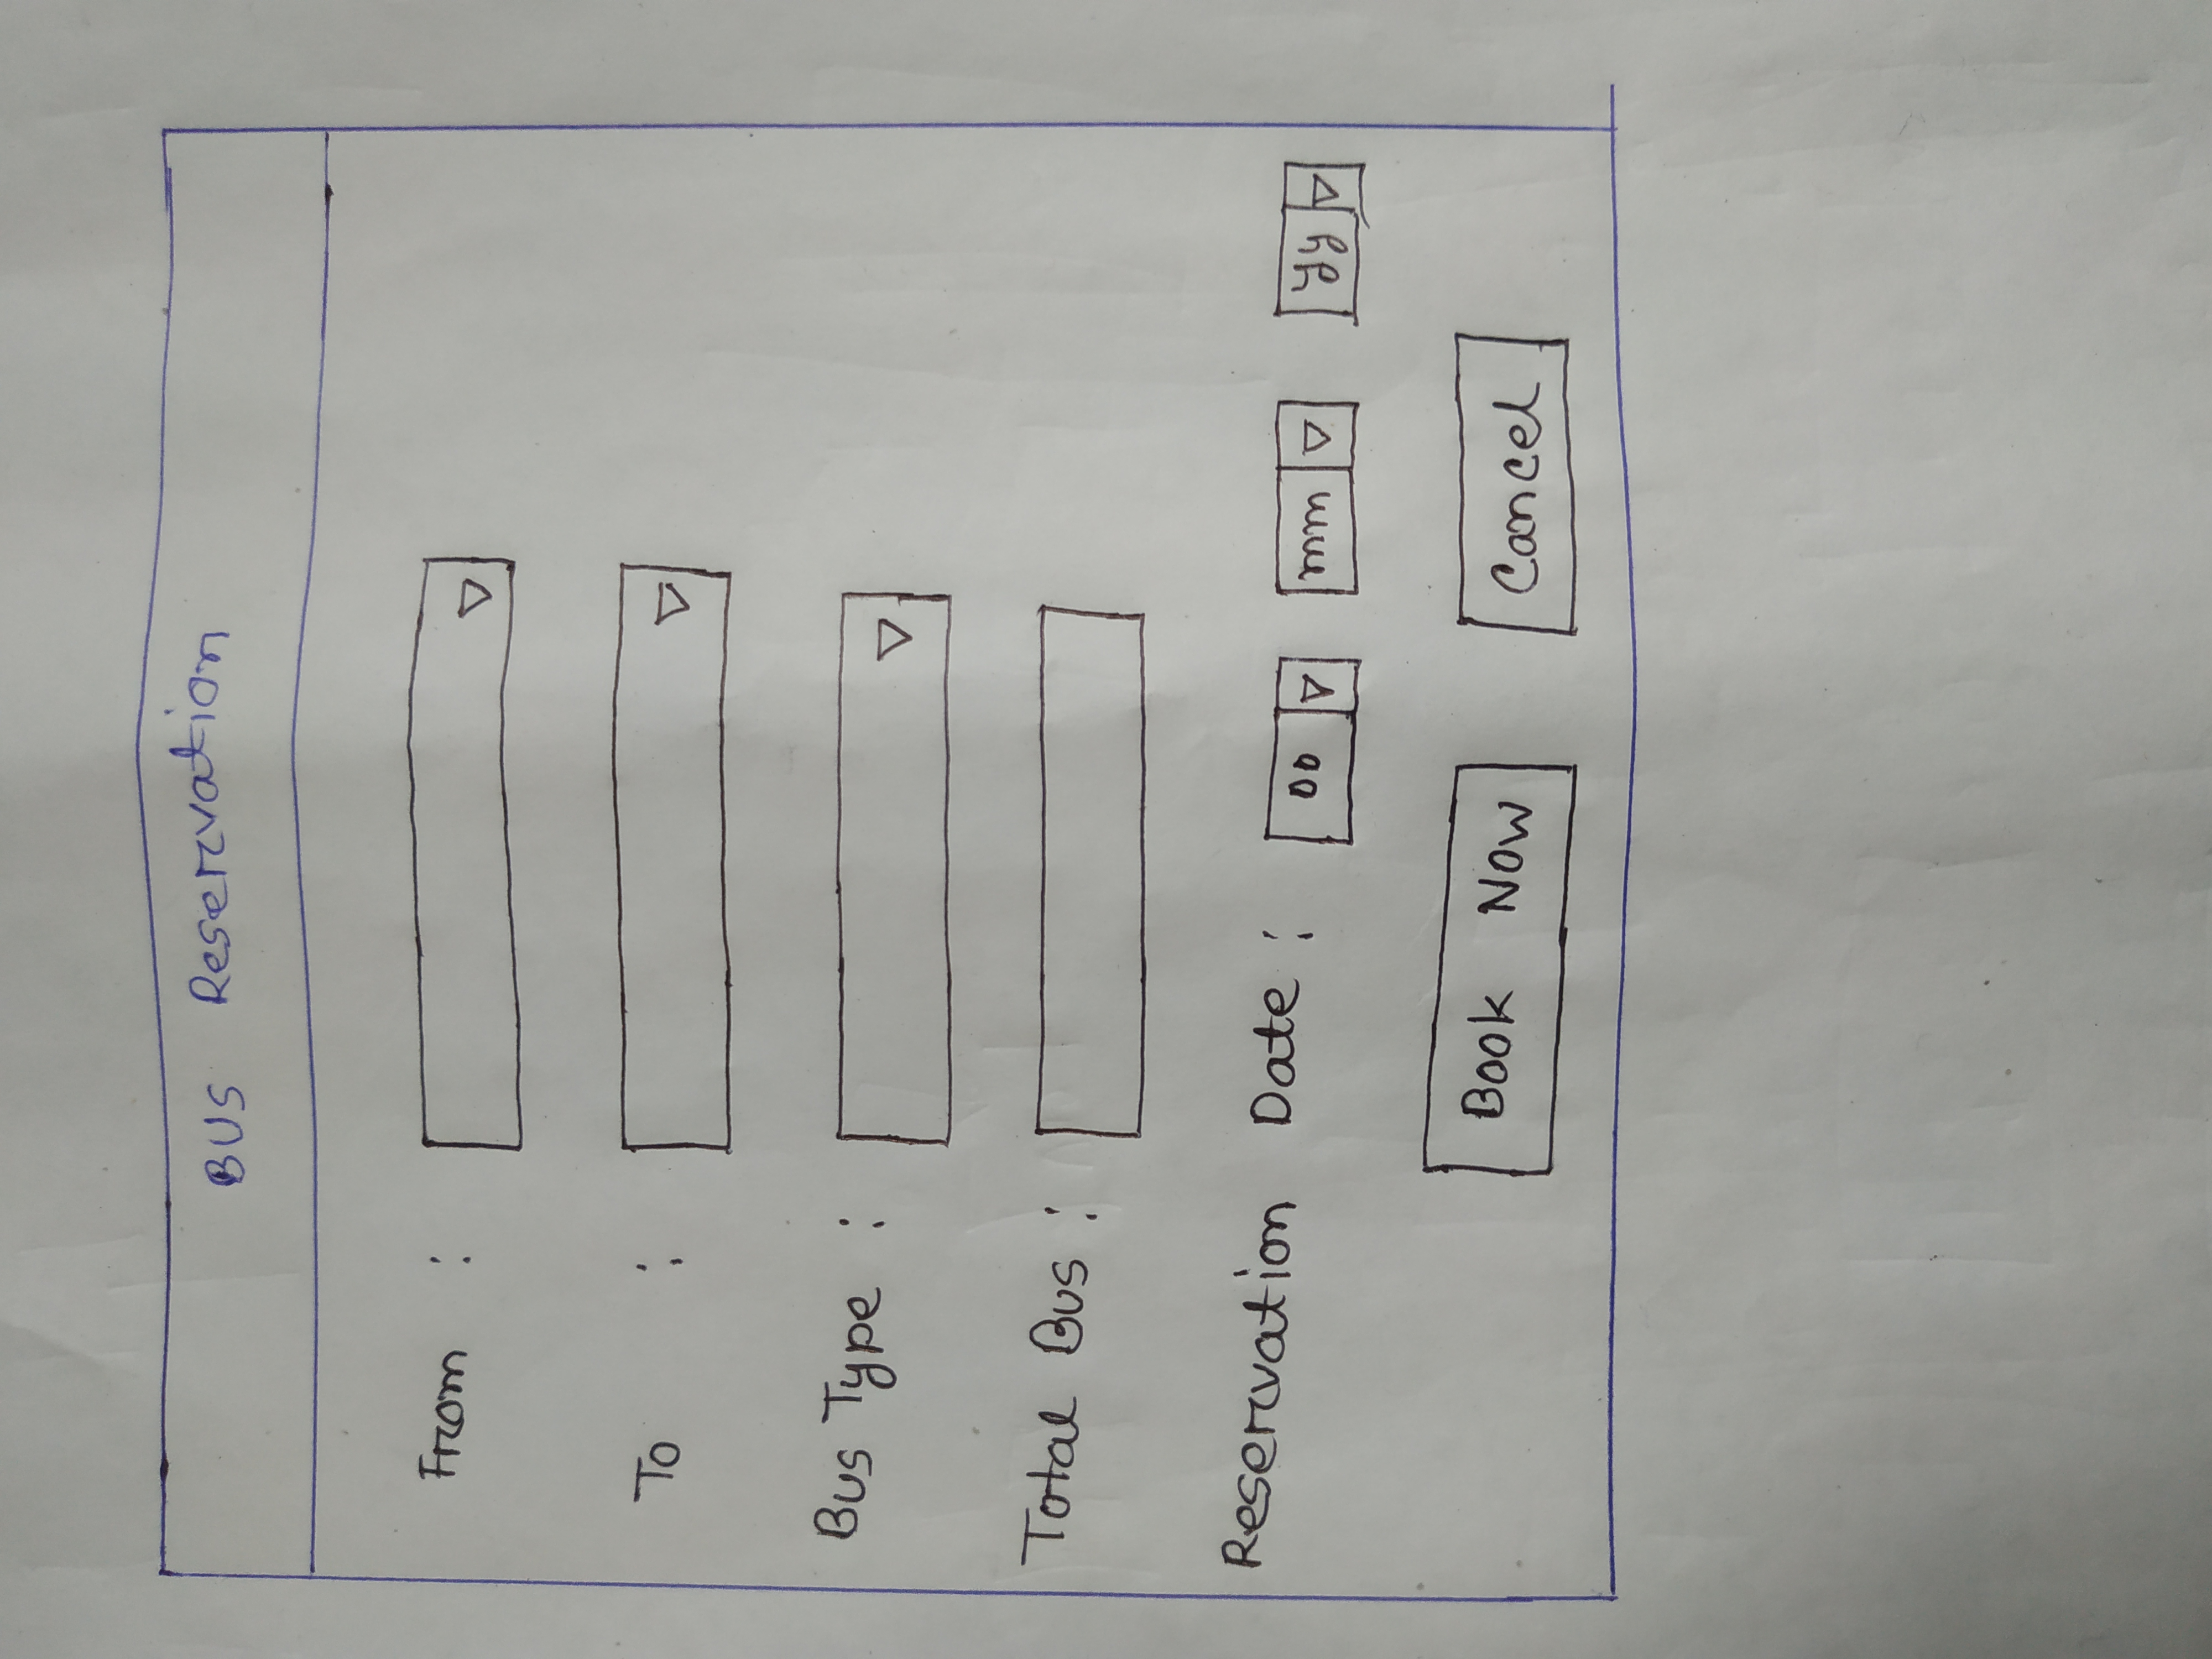 BUS Reservation
From :
To :
Bus Type :
Total Bus :
Reservation Date : DD mm yy
Book Now Cancel